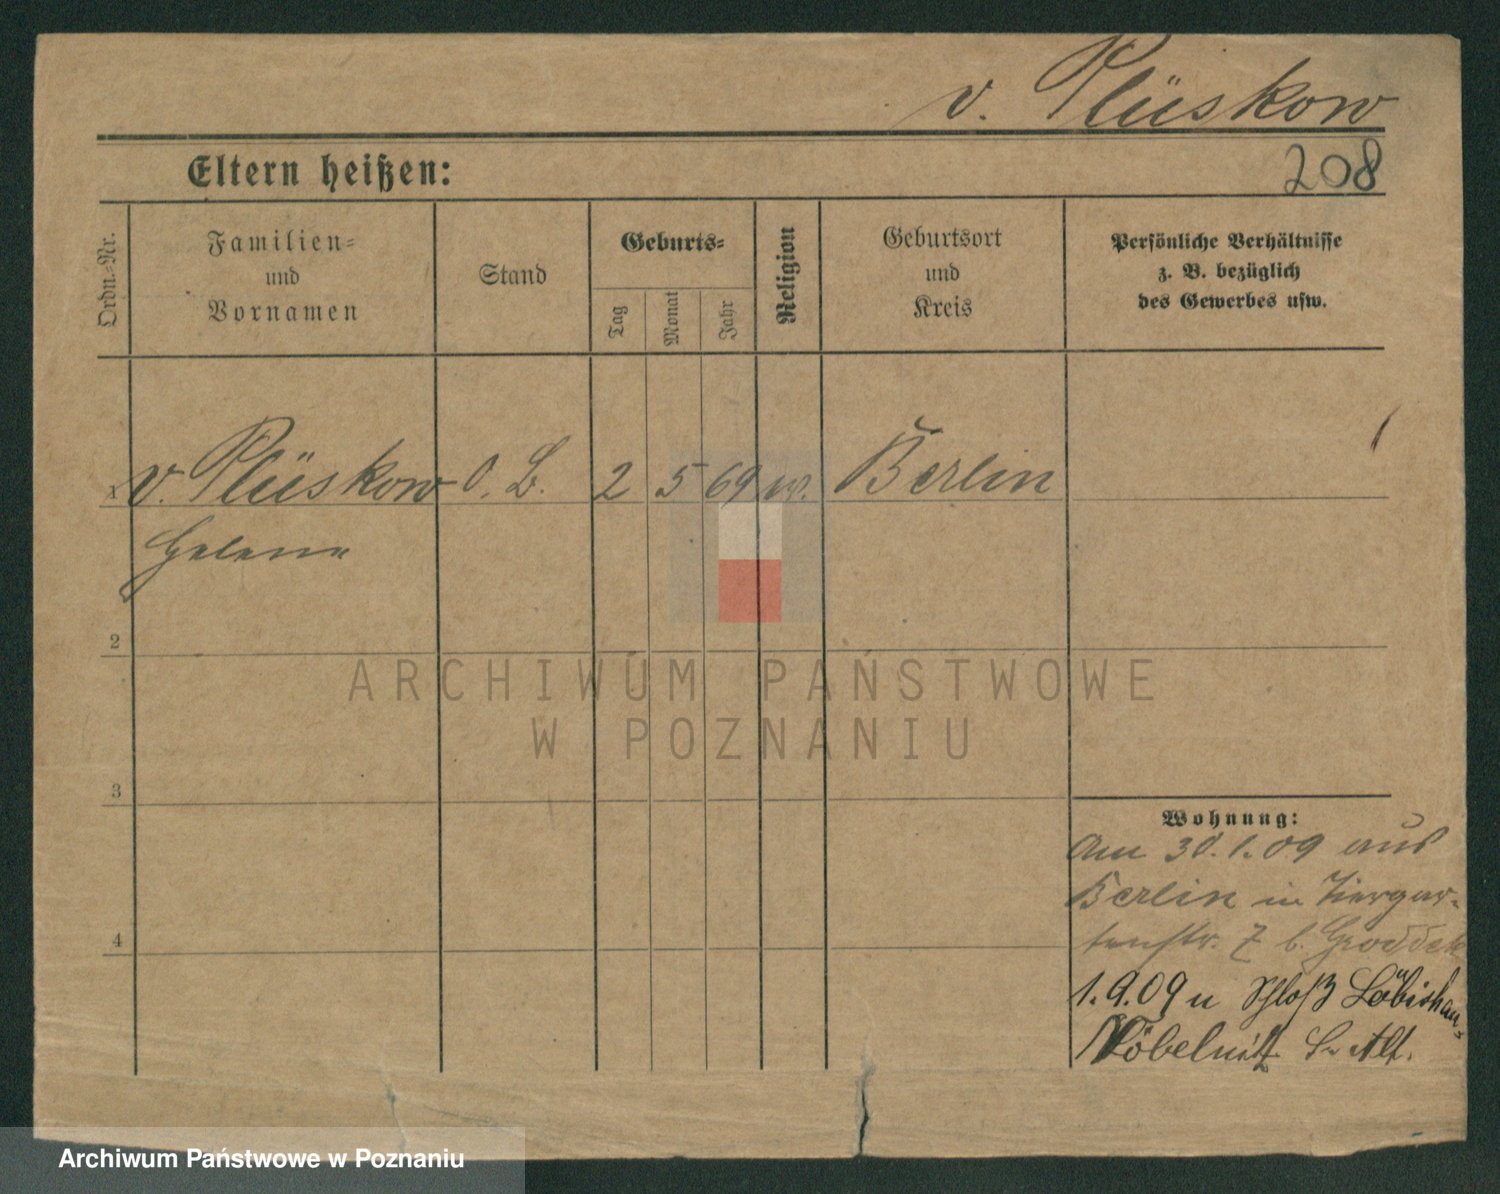 v. Plüskow
Eltern heißen:
208
Ordn.-Nr.
Familien-
und
Vornamen
Stand
Geburts-
Tag
Monat
Jahr
Religion
Geburtsort
und
Kreis
Persönliche Verhältnisse
z. B. bezüglich
des Gewerbes usw.
1 v. Plüskow O. B. 2 5 69 Berlin
Helene
2
3
4
Wohnung:
Am 30.1.09 aus
Berlin in Tiergar-
tenstr. 7 b. Groddek
1.9.09 n Schloß Löbichau
Nöbdenitz S. Alt.
ARCHIWUM PAŃSTWOWE
W POZNANIU
Archiwum Państwowe w Poznaniu